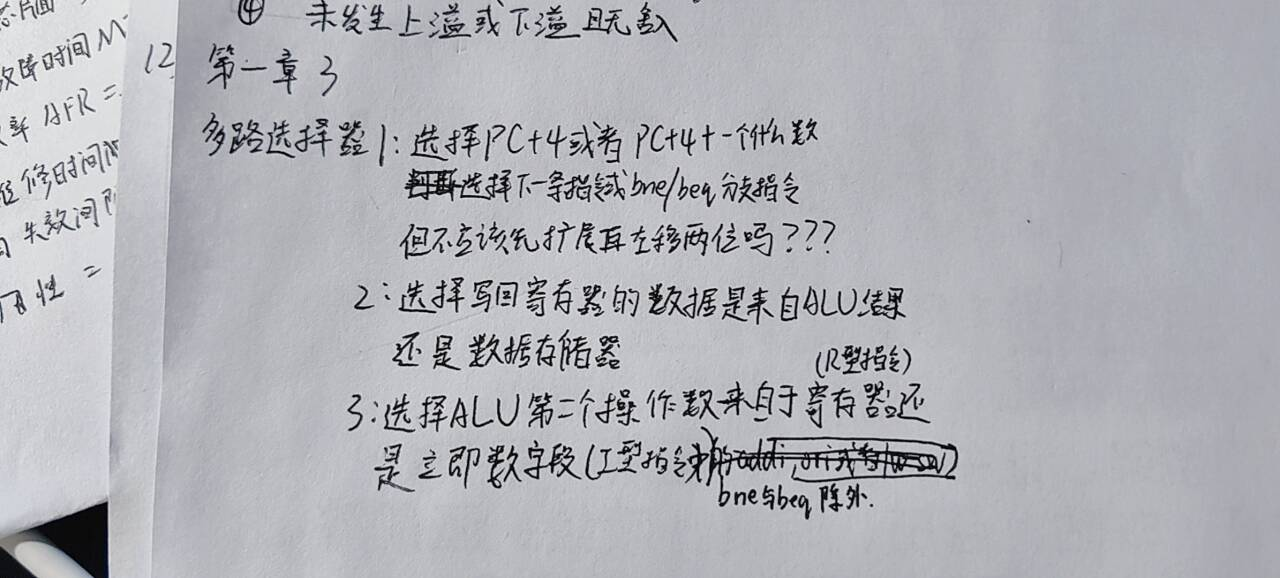 芯片面
故障时间 M
率 AFR =
修时间
失效间
用性 =
④ 未发生上溢或下溢且无舍入
12 第一章 3
多路选择器 1: 选择PC+4或者PC+4+一个什么数
选择下一条指令或bne/beq分支指令
但不应该先扩展再左移两位吗???
2: 选择写回寄存器的数据是来自ALU结果
还是数据存储器
(R型指令)
3: 选择ALU第二个操作数来自于寄存器还
是立即数字段(I型指令)
bne与beq除外.